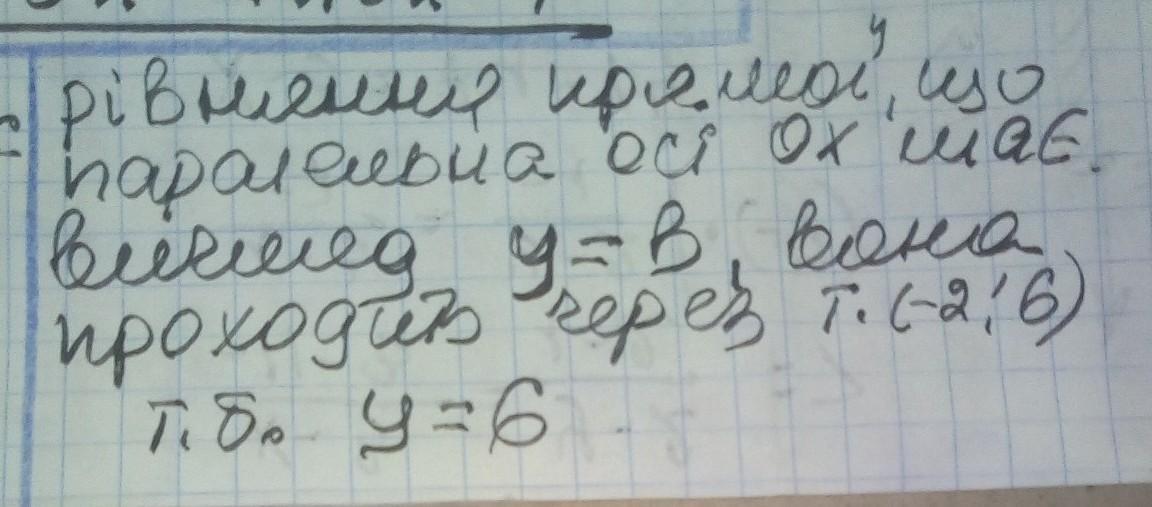 рівняння прямої, що
паралельна осі ох має
вигляд y = в, вона
проходить через т. (-2; 6)
т.б. y = 6